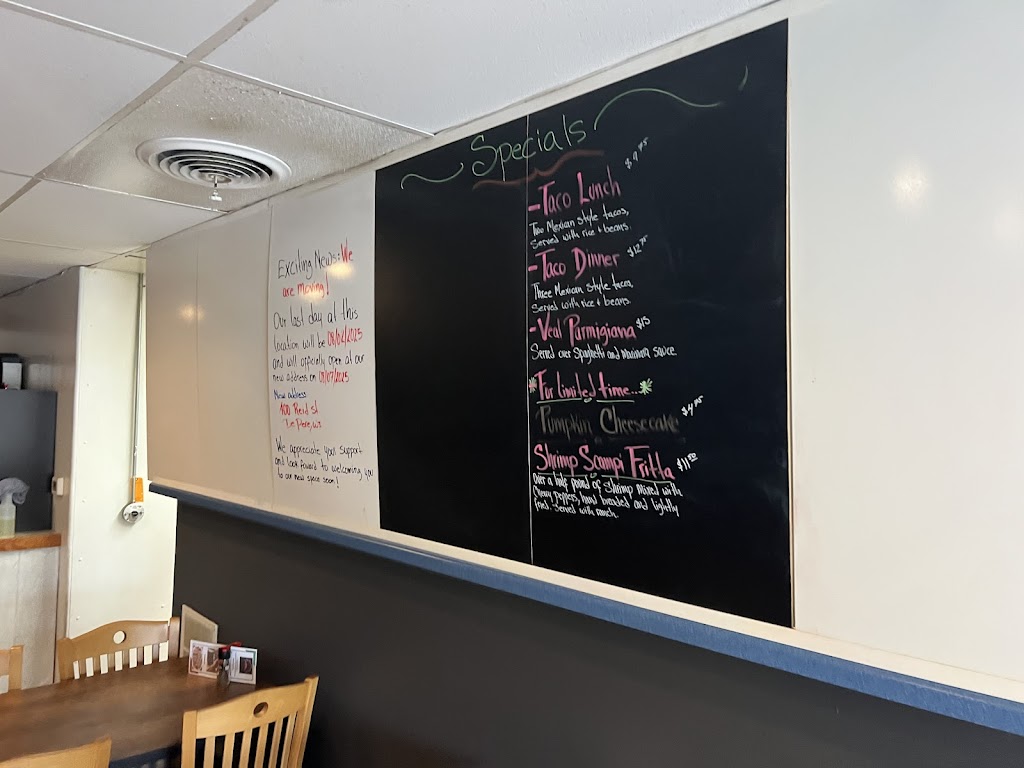 Exciting News: We
are moving!
Our last day at this
location will be 08/02/2025
and will officially open at our
new address on
New address:
100 Reid st
De Pere, WI
We appreciate your support
and look forward to welcoming you
to our new space soon!
Specials
- Taco Lunch $9.95
Two Mexican style tacos,
Served with rice + beans.
- Taco Dinner $12.95
Three Mexican style tacos,
Served with rice + beans.
- Veal Parmigiana $15
Served over Spaghetti and Marinara sauce.
* For limited time... *
Pumpkin Cheesecake $4.95
Shrimp Scampi Fritta $11.50
Over a half pound of Shrimp mixed with
Cherry peppers, hand breaded and lightly
fried. Served with ranch.